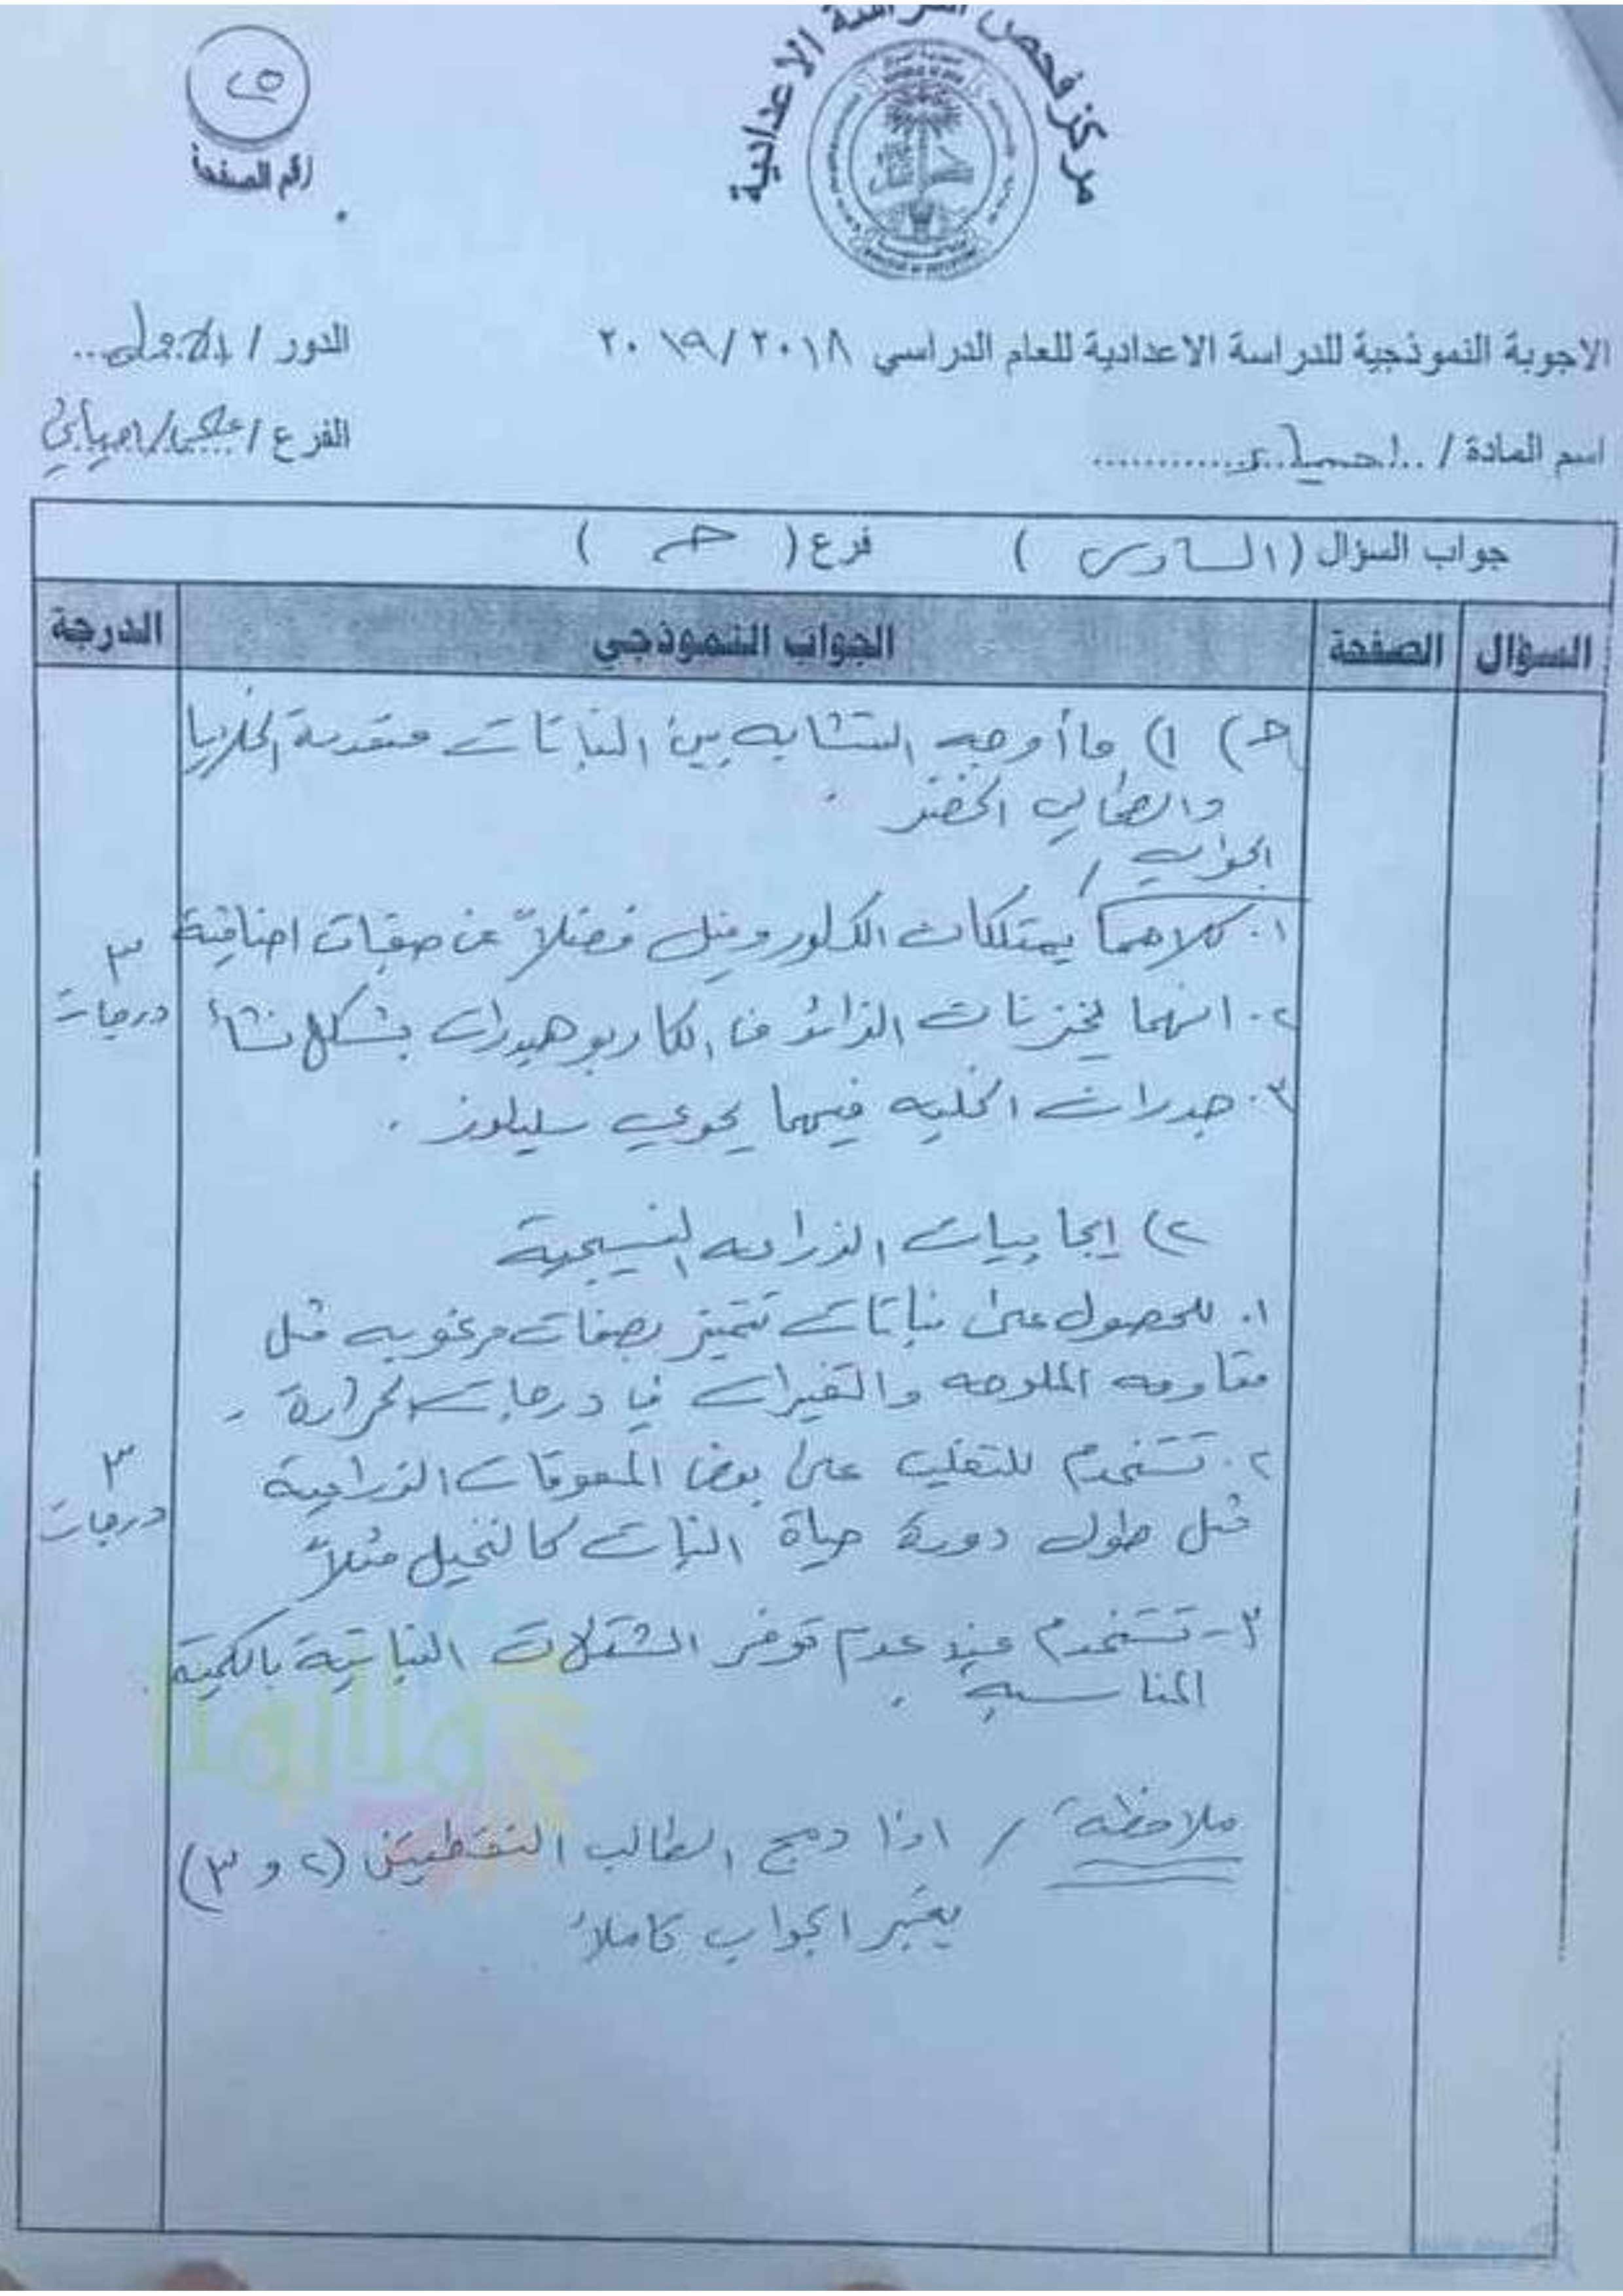 مركز فحص الدراسة الاعدادية
٢٥
رقم الصفحة
الاجوبة النموذجية للدراسة الاعدادية للعام الدراسي ٢٠١٩/٢٠١٨
الدور / الاول
اسم المادة / احياء
الفرع / علمي/احيائي
جواب السؤال ( السادس ) فرع ( حـ )
السؤال الصفحة الجواب النموذجي الدرجة
حـ) ١) ما أوجه التشابه بين النباتات متعددة الخلايا
والطحالب الخضر .
الجواب /
١. كلاهما يمتلكان الكلوروفيل فضلاً عن صبغات اضافية
٢. انهما يخزنان الزائد من الكاربوهيدرات بشكل نشأ
٣. جدران الخلية فيهما يحوي سليلوز .
٣ درجات
٢) إيجابيات الزراعه النسيجية
١. للحصول على نباتات تتميز بصفات مرغوبه مثل
مقاومه الملوحه والتغيرات في درجات الحرارة .
٢. تستخدم للتغلب على بعض المعوقات الزراعية
مثل طول دورة حياة النبات كالنخيل مثلاً
٣ درجات
٣- تستخدم عند عدم توفر الشتلات النباتية بالكمية
المناسبه .
ملاحظة / اذا دمج الطالب النقطتين (٢ و ٣)
يعتبر الجواب كاملاً